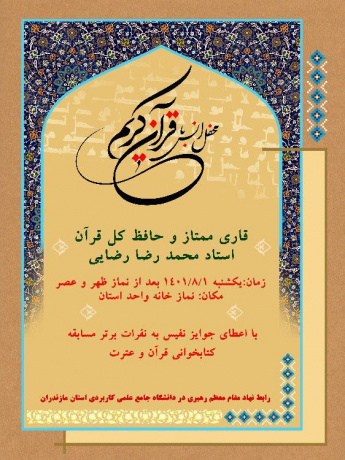 محفل انس با قرآن کریم
قاری ممتاز و حافظ کل قرآن
استاد محمد رضا رضایی
زمان:یکشنبه ۱۴۰۱/۸/۱ بعد از نماز ظهر و عصر
مکان: نماز خانه واحد استان
با اعطای جوایز نفیس به نفرات برتر مسابقه
کتابخوانی قرآن و عترت
رابط نهاد مقام معظم رهبری در دانشگاه جامع علمی کاربردی استان مازندران